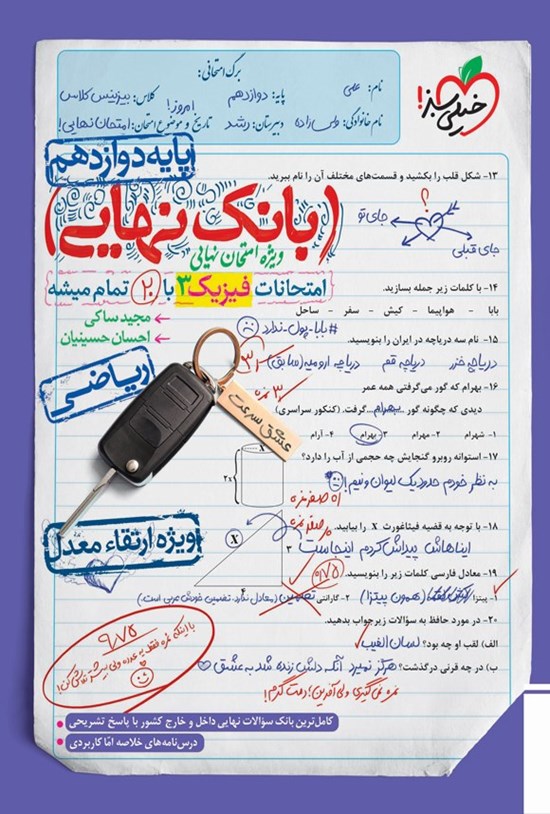 برگ امتحانی:
نام: علی
پایه: دوازدهم
کلاس: بیزینس کلاس
نام خانوادگی: ولی‌زاده
دبیرستان: رشد
تاریخ و موضوع امتحان: امروز! امتحان نهایی!
خیلی سبز!
پایه دوازدهم
۱۳- شکل قلب را بکشید و قسمت‌های مختلف آن را نام ببرید.
؟
جای تو
جای قبلی
(بانک نهایی)
ویژه امتحان نهایی
امتحانات فیزیک ۳ با ۲۰ تمام میشه
مجید ساکی
احسان حسینیان
۱۴- با کلمات زیر جمله بسازید.
بابا - هواپیما - کیش - سفر - ساحل
#بابا-پول-ندارد
۱۵- نام سه دریاچه در ایران را بنویسید.
دریاچه خزر دریاچه قم دریاچه ارومیه (سابق)
ریاضی
۱۶- بهرام که گور می‌گرفتی همه عمر
دیدی که چگونه گور بهرام گرفت. (کنکور سراسری)
۳ نمره
۱- شهرام ۲- مهرام ۳- بهرام ۴- آرام
عشق سرعت
۱۷- استوانه روبرو گنجایش چه حجمی از آب را دارد؟
x
2x
به نظر خودم حدود یک لیوان و نیم!
اه صفر نمره
ویژه ارتقاء معدل
۱۸- با توجه به قضیه فیثاغورت X را بیابید.
صفر نمره
X
۳
۴
ایناهاش پیداش کردم اینجاست
۱۹- معادل فارسی کلمات زیر را بنویسید.
۰/۷۵
۱- پیتزا (همون پیتزا) ۲- گارانتی تضمین (معادل ندارد. تضمین خودش عربی است.)
۲۰- در مورد حافظ به سؤالات زیر جواب بدهید.
الف) لقب او چه بود؟ لسان الغیب
ب) در چه قرنی درگذشت؟ هرگز نمیرد آنکه دلش زنده شد به عشق
نمره نمی‌گیری ولی آفرین! دمت گرم!
۹/۷۵
با اینکه نمره فقط یه عدده ولی بیشتر تلاش کن!
کامل‌ترین بانک سؤالات نهایی داخل و خارج کشور با پاسخ تشریحی
درس‌نامه‌های خلاصه امّا کاربردی